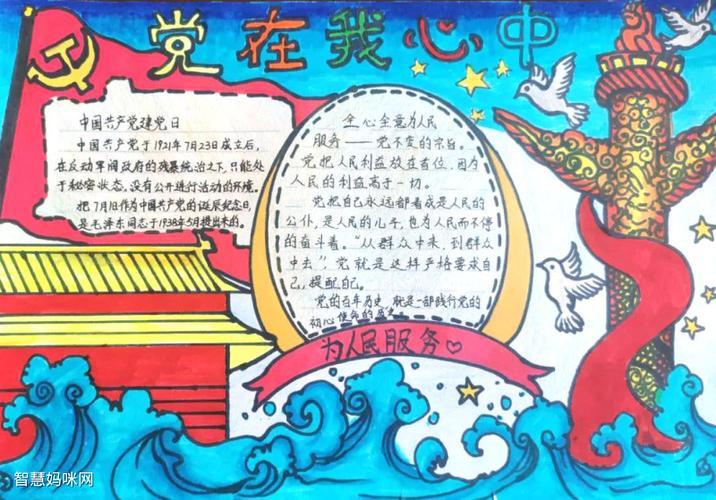 党在我心中
中国共产党建党日
中国共产党于1921年7月23日成立后,
在反动军阀政府的残暴统治之下,只能处
于秘密状态,没有公开进行活动的环境。
把7月1日作为中国共产党的诞辰纪念日,
是毛泽东同志于1938年5月提出来的。
全心全意为人民
服务——党不变的宗旨。
党把人民利益放在首位,因为
人民的利益高于一切。
党把自己永远都看成是人民的
公仆,是人民的儿子,也为人民而不停
的奋斗着。“从群众中来,到群众
中去”,党就是这样严格要求自
己,提醒自己。
党的百年历史,就是一部践行党的
初心使命的历史。
为人民服务
智慧妈咪网